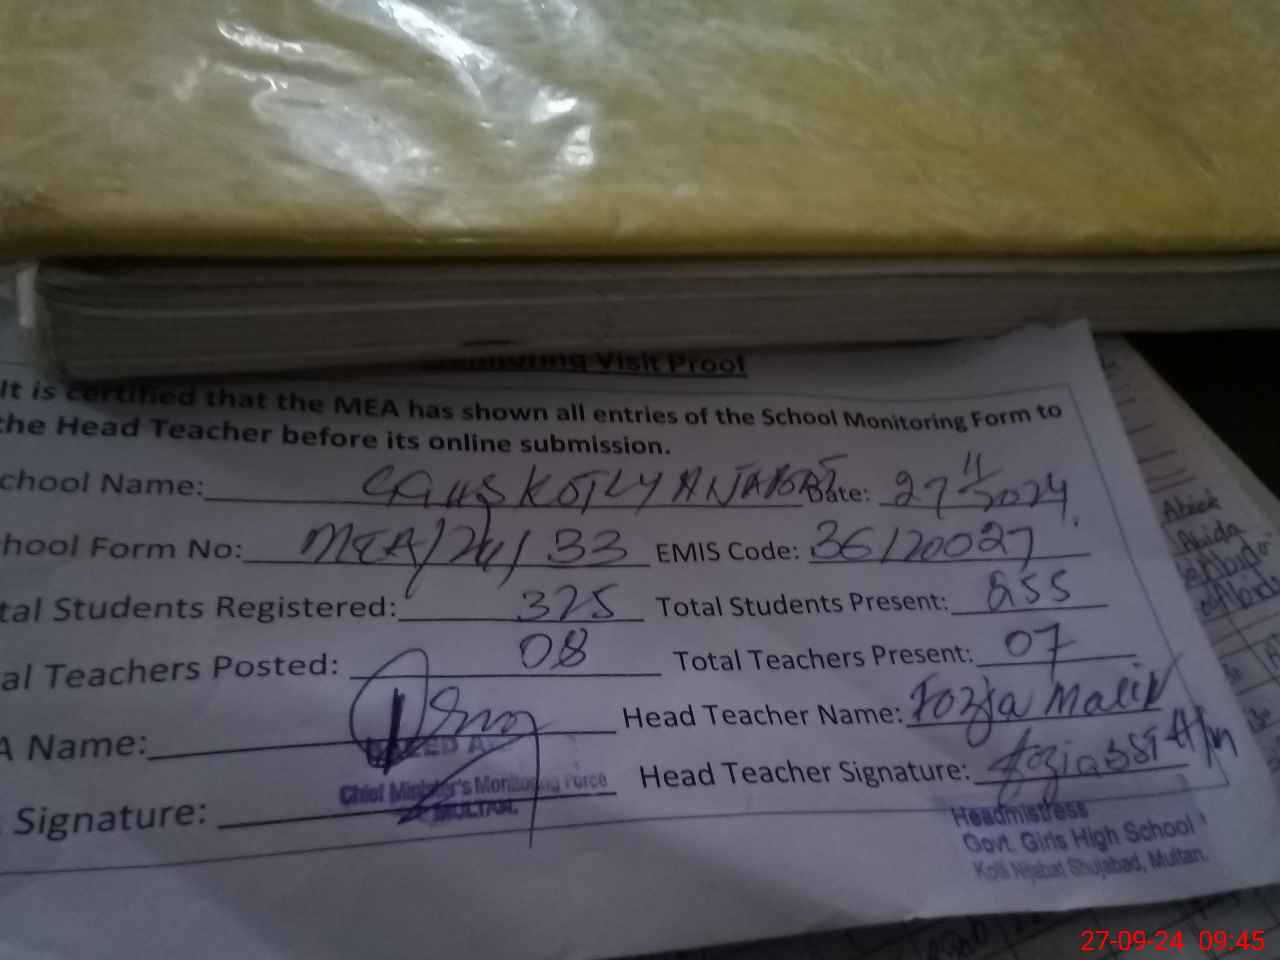 Monitoring Visit Proof
It is certified that the MEA has shown all entries of the School Monitoring Form to
the Head Teacher before its online submission.
chool Name: GGHS KOTLY NJABAT Date: 27 11 2024
hool Form No: MEA/24/33 EMIS Code: 36120027
tal Students Registered: 325 Total Students Present: 255
al Teachers Posted: 08 Total Teachers Present: 07
A Name: Head Teacher Name: Fozia Malik
Signature: Head Teacher Signature: fozia SST
Chief Minister's Monitoring Force
MULTAN.
Headmistress
Govt. Girls High School
Kotli Nijabat Shujabad, Multan.
Abida
27-09-24 09:45